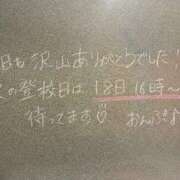 日も沢山ありがとうでした!
の登校日は18日16時〜
待ってます♡
おんぷ